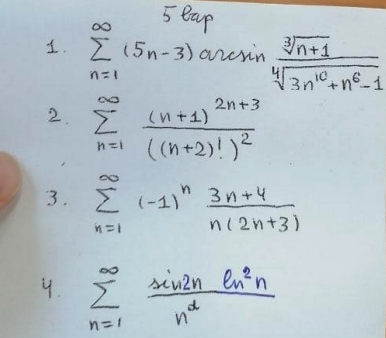 5 вар
1. ∑_{n=1}^{∞} (5n-3) arcsin \frac{∛(n+1)}{∜(3n^{10}+n^6-1)}
2. ∑_{n=1}^{∞} \frac{(n+1)^{2n+3}}{((n+2)!)^2}
3. ∑_{n=1}^{∞} (-1)^n \frac{3n+4}{n(2n+3)}
4. ∑_{n=1}^{∞} \frac{sin2n ln^2 n}{n^α}